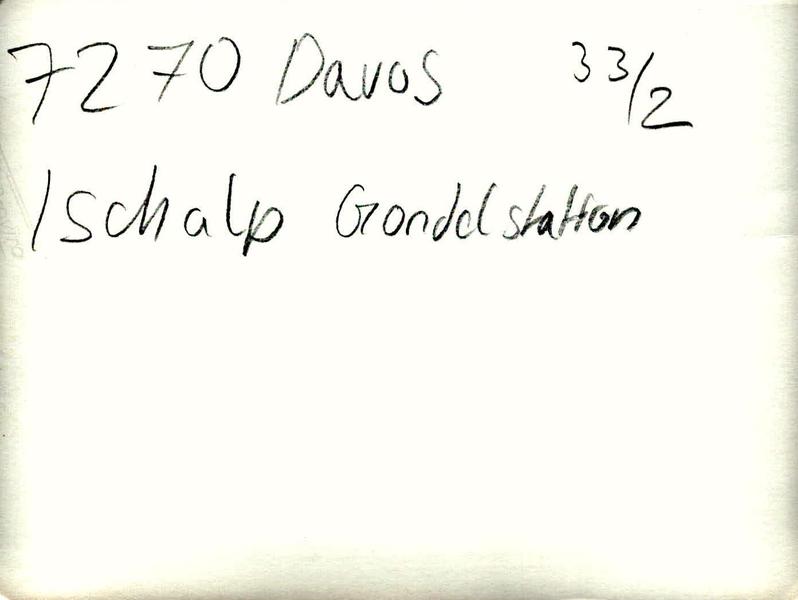 7270 Davos 33/2
Ischalp Gondelstation